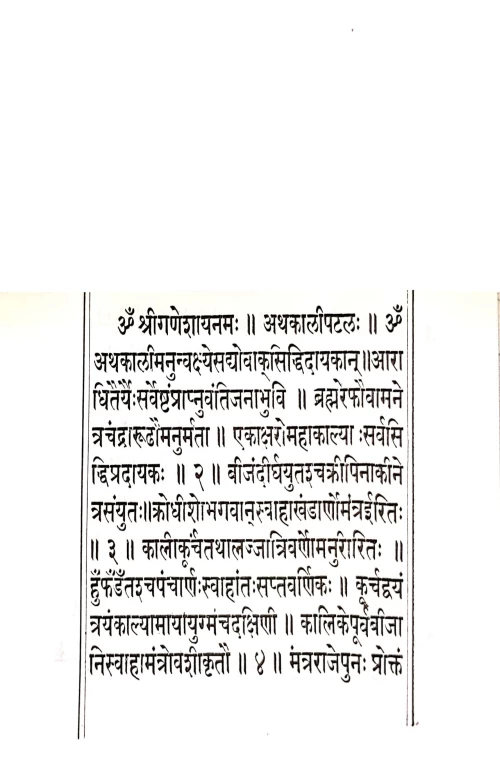 ॐ श्रीगणेशायनमः ॥ अथकालीपटलः ॥ ॐ
अथकालीमनुन्वक्ष्येसद्योवाक्सिद्धिदायकान्॥आरा
धितैर्यैःसर्वेष्टंप्राप्नुवंतिजनाभुवि ॥ ब्रह्मरेफौवामने
त्रचंद्रारूढौमनुर्मता ॥ एकाक्षरोमहाकाल्या ःसर्वसि
द्धिप्रदायकः ॥ २ ॥ बीजंदीर्घयुतश्चक्रीपिनाकीने
त्रसंयुतः॥क्रोधीशोभगवान्स्वाहाखंडार्णोमंत्रईरितः
॥ ३ ॥ कालीकूर्चंतथालज्जात्रिवर्णोमनुरीरितः ॥
हुँफँडँतश्चपंचार्णःस्वाहांतःसप्तवर्णिकः ॥ कूर्चद्वयं
त्रयंकाल्यामायायुग्मंचदक्षिणी ॥ कालिकेपूर्वबीजा
निस्वाहामंत्रोवशीकृतौ ॥ ४ ॥ मंत्रराजेपुनः प्रोक्तं